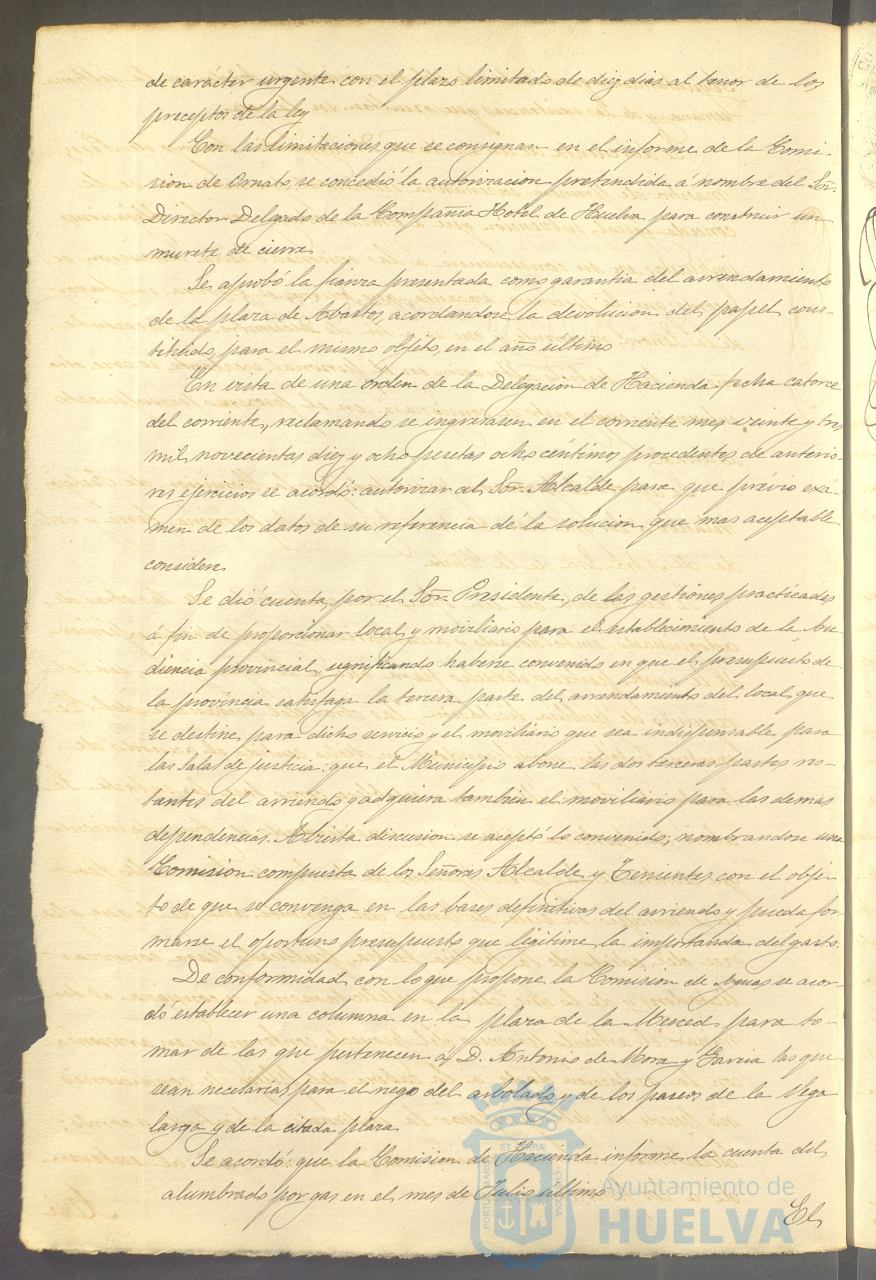 de carácter urgente con el plazo limitado de diez dias al tenor de los
preceptos de la ley
Con las limitaciones que se consignan en el informe de la Comi-
sion de Ornato, se concedió la autorizacion pretendida á nombre del Sor.
Director Delgado de la Compañia Hotel de Huelva para construir un
murete de cierre
Se aprobó la fianza presentada como garantia del arrendamiento
de la plaza de Abastos, acordandose la devolucion del papel cons-
titúido para el mismo objeto, en el año último
En vista de una órden de la Delegacion de Hacienda fecha catorce
del corriente, reclamando se ingresasen en el corriente mes veinte y tres
mil novecientas diez y ocho pesetas ocho céntimos procedentes de anterio-
res ejercicios se acordó: autorizar al Sor. Alcalde para que prévio exá-
men de los datos de su referencia dé la solucion que mas aceptable
considere.
Se dió cuenta por el Sor. Presidente, de las gestiones practicadas
á fin de proporcionar local y moviliario para el establecimiento de la Au
diencia provincial, significando haberse convenido en que el presupuesto de
la provincia satisfaga la tercera parte del arrendamiento del local que
se destine para dicho servicio y el moviliario que sea indispensable para
las Salas de justicia: que el Municipio abone las dos terceras partes res-
tantes del arriendo y adquiera tambien el moviliario para las demas
dependencias. Abierta discusion se aceptó lo convenido, nombrandose una
Comision compuesta de los Señores Alcalde y Tenientes con el obje-
to de que se convenga en las bases definitivas del arriendo y pueda for
marse el oportuno presupuesto que legitime la importancia del gasto.
De conformidad con lo que propone la Comision de Aguas se acor-
dó establecer una columna en la plaza de la Merced para to-
mar de las que pertenecen a D. Antonio de Mora y Garcia las que
sean necesarias para el riego del arbolado y de los paseos de la Vega
larga y de la citada plaza.
Se acordó: que la Comision de Hacienda informe la cuenta del
alumbrado por gas en el mes de Julio último
El
Ayuntamiento de
HUELVA